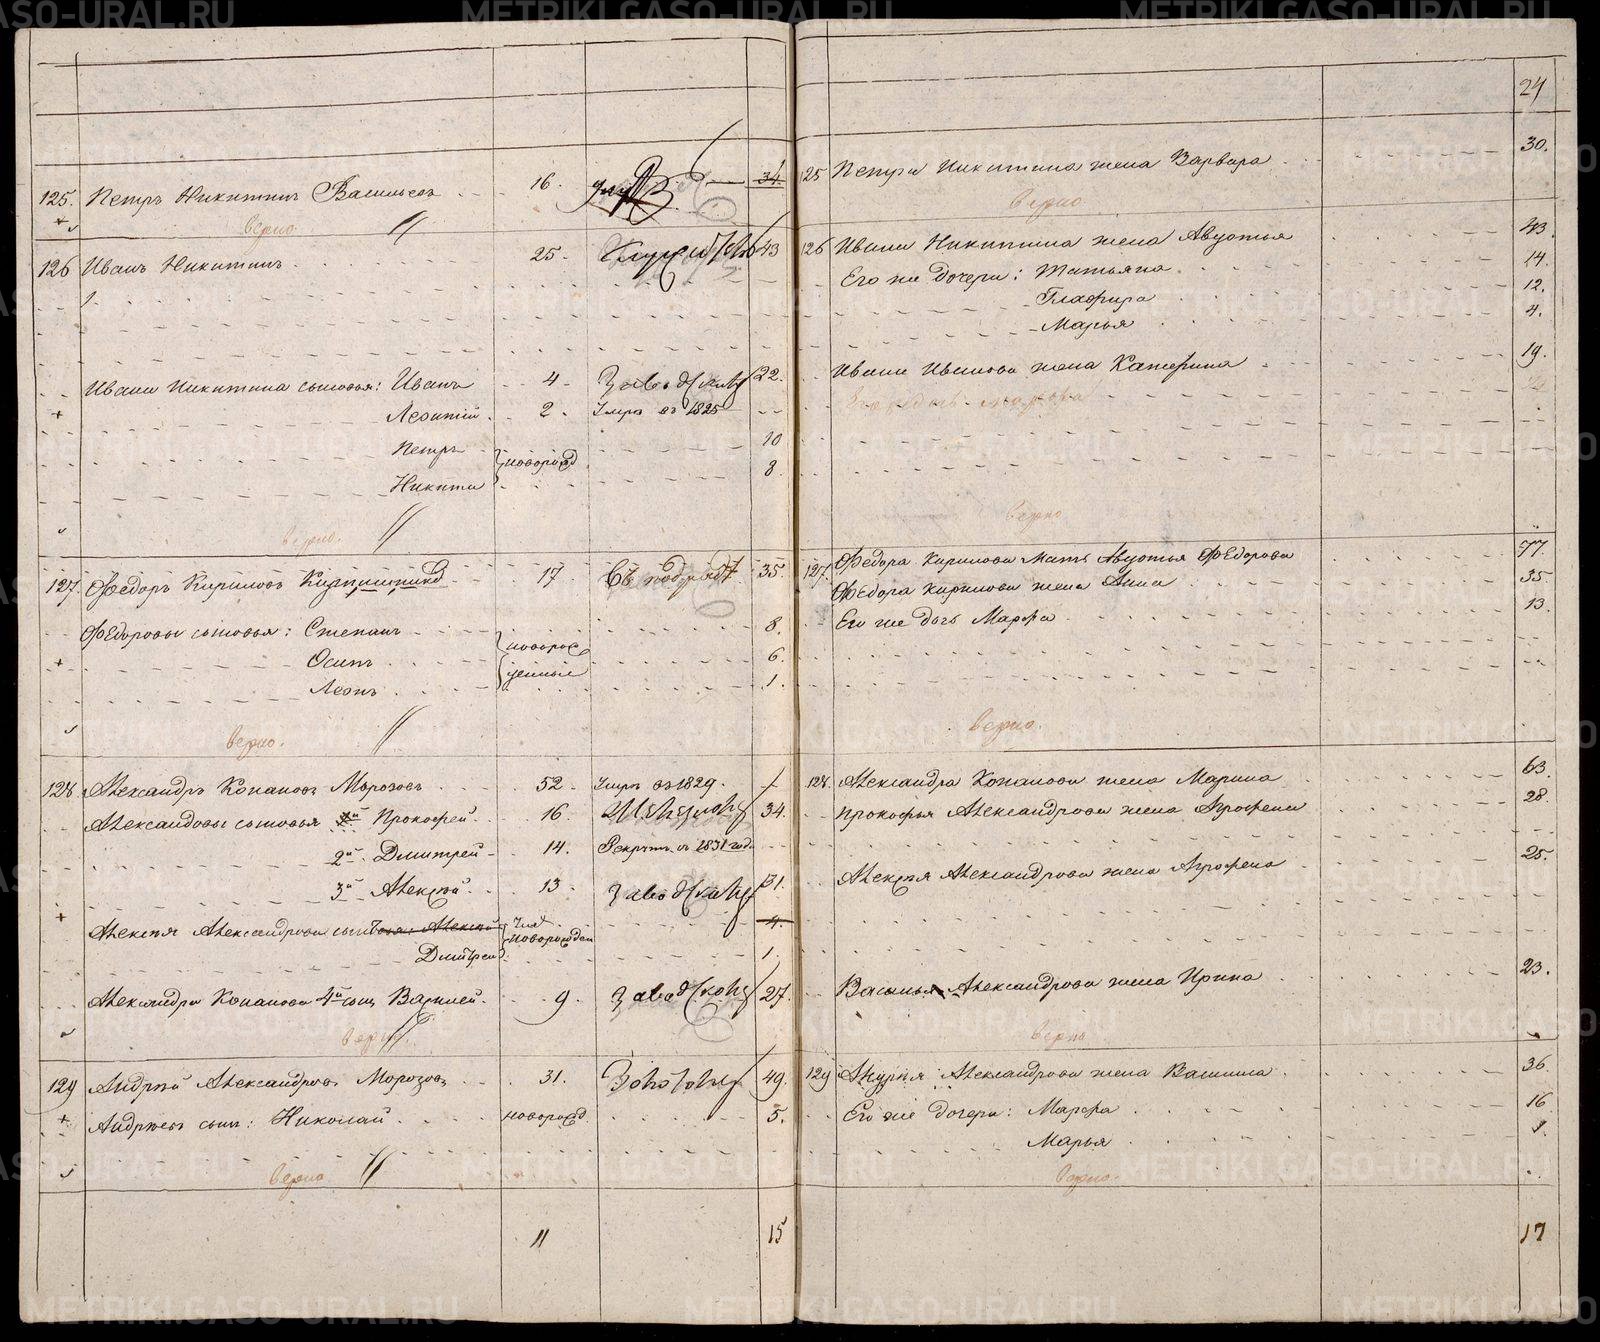 24
125. Петръ Никитинъ Васильевъ 16. 34.
верно
126 Иванъ Никитинъ 25. 43
1.
Ивана Никитина сыновья: Иванъ 4 22.
Леонтій 2. Умръ въ 1825
Петръ новорожд 10
Никита 8.
верно.
127. Ѳедоръ Кириловъ 17 35.
Ѳедоровы сыновья: Степанъ новорож 8.
Осипъ денные 6.
Леонъ 1.
верно.
128 Александръ Конановъ Морозовъ 52. Умръ въ 1829.
Александровы сыновья Прокофей 16. 34.
2й Дмитрей 14. Рекрутъ въ 1831 год.
3й Алексѣй 13 31.
Алексѣя Александрова сыновья: Алексѣй 4.
Дмитрей новорожден 1.
Александра Конанова 4й сынъ Василей. 9. 27.
верно.
129 Андрѣй Александровъ Морозовъ 31. 49.
Андрѣевъ сынъ: Николай новорожд. 5.
верно
11 15
125 Петра Никитина жена Варвара 30.
верно
126 Ивана Никитина жена Авдотья 43.
Его же дочери: Татьяна 14.
Глафира 12.
Марья 4.
Ивана Иванова жена Катерина 19.
верно
127. Ѳедора Кирилова мать Авдотья Ѳедорова 77.
Ѳедора Кирилова жена Анна 35.
Его же дочь Марфа 13.
верно.
128. Александра Конанова жена Марина 63.
Прокофья Александрова жена Агрофена 28.
Алексѣя Александрова жена Агрофена 25.
Василья Александрова жена Ирина 23.
верно
129 Андрѣя Александрова жена Васииса 36
Его же дочери: Марфа 16
Марья
верно.
17
METRIKI.GASO-URAL.RU